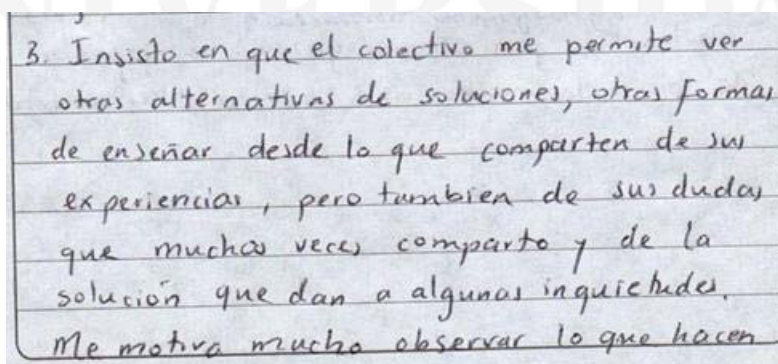 3. Insisto en que el colectivo me permite ver
otras alternativas de soluciones, otras formas
de enseñar desde lo que comparten de sus
experiencias, pero tambien de sus dudas
que muchas veces comparto y de la
solución que dan a algunas inquietudes.
Me motiva mucho observar lo que hacen